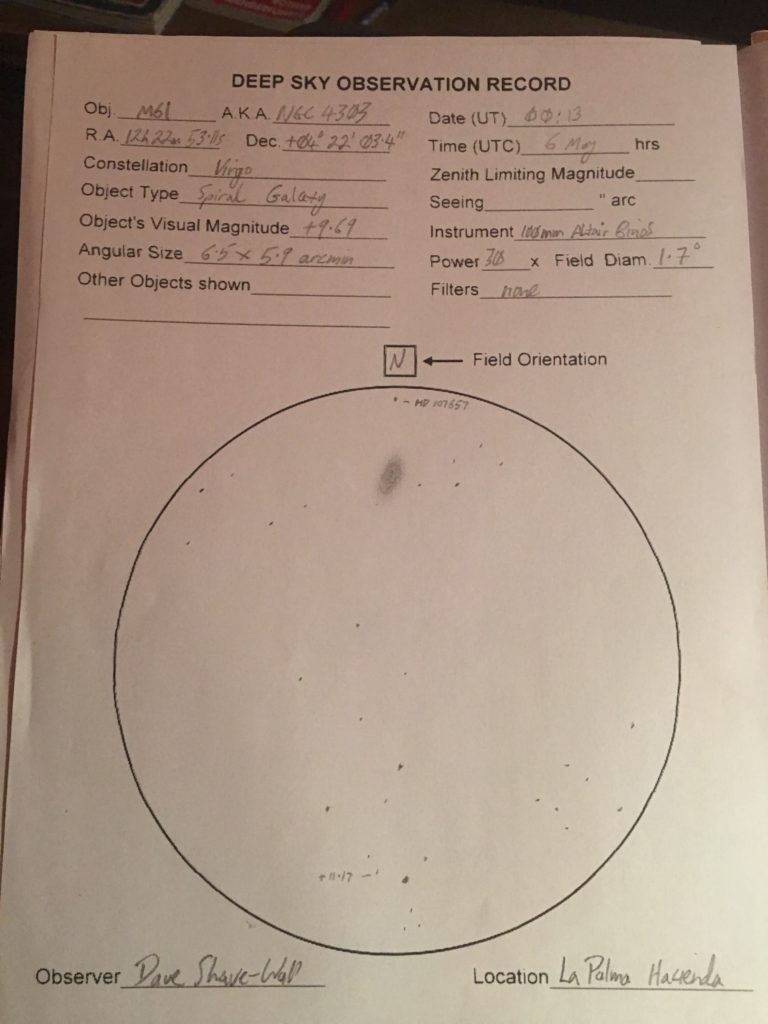 DEEP SKY OBSERVATION RECORD
Obj. M61 A.K.A. NGC 4303
R.A. 12h 22m 53.11s Dec. +04° 22' 03.4"
Constellation Virgo
Object Type Spiral Galaxy
Object's Visual Magnitude +9.69
Angular Size 6.5 x 5.9 arcmin
Other Objects shown
Date (UT) 00:13
Time (UTC) 6 May hrs
Zenith Limiting Magnitude
Seeing " arc
Instrument 100mm Altair Binos
Power 30 x Field Diam. 1.7°
Filters none
N ← Field Orientation
- HD 107657
+11.17 -
Observer Dave Shave-Wall
Location La Palma Hacienda